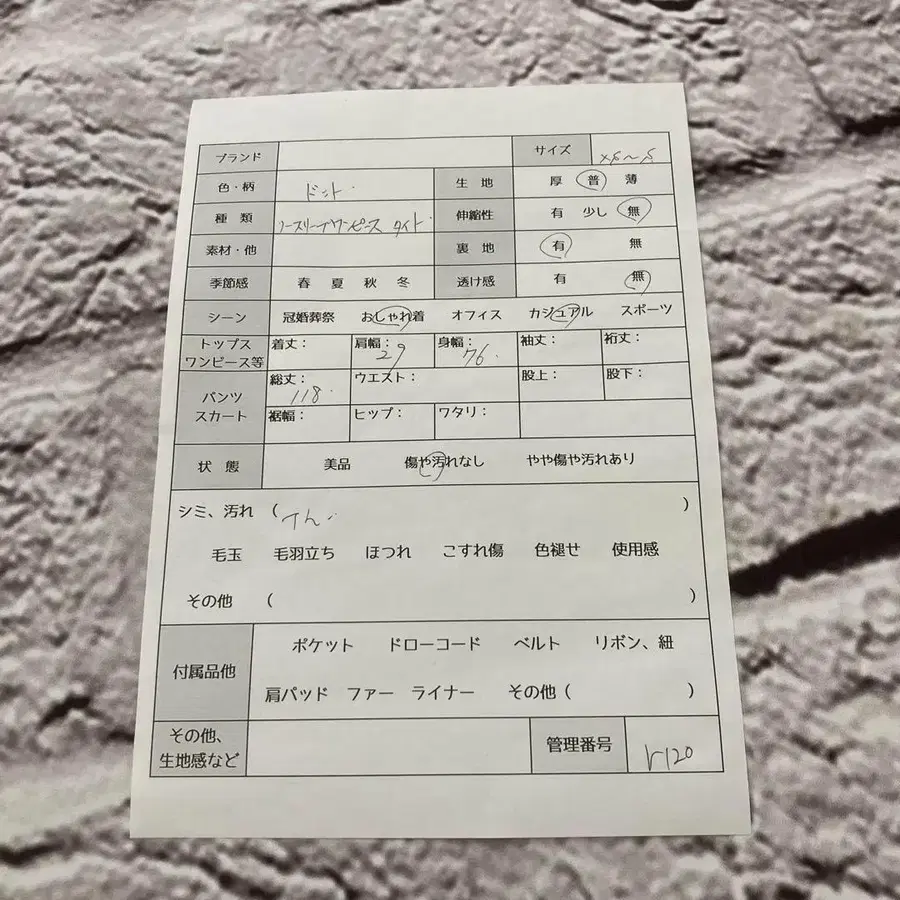 ブランド サイズ XS～S
色・柄 ドット. 生地 厚 普 薄
種類 ノースリーブワンピース タイト. 伸縮性 有 少し 無
素材・他 裏地 有 無
季節感 春 夏 秋 冬 透け感 有 無
シーン 冠婚葬祭 おしゃれ着 オフィス カジュアル スポーツ
トップス
ワンピース等 着丈： 肩幅：29 身幅：76. 袖丈： 裄丈：
パンツ
スカート 総丈：118. ウエスト： 股上： 股下：
裾幅： ヒップ： ワタリ：
状態 美品 傷や汚れなし やや傷や汚れあり
シミ、汚れ ( )
毛玉 毛羽立ち ほつれ こすれ傷 色褪せ 使用感
その他 ( )
付属品他 ポケット ドローコード ベルト リボン、紐
肩パッド ファー ライナー その他 ( )
その他、
生地感など 管理番号 r120